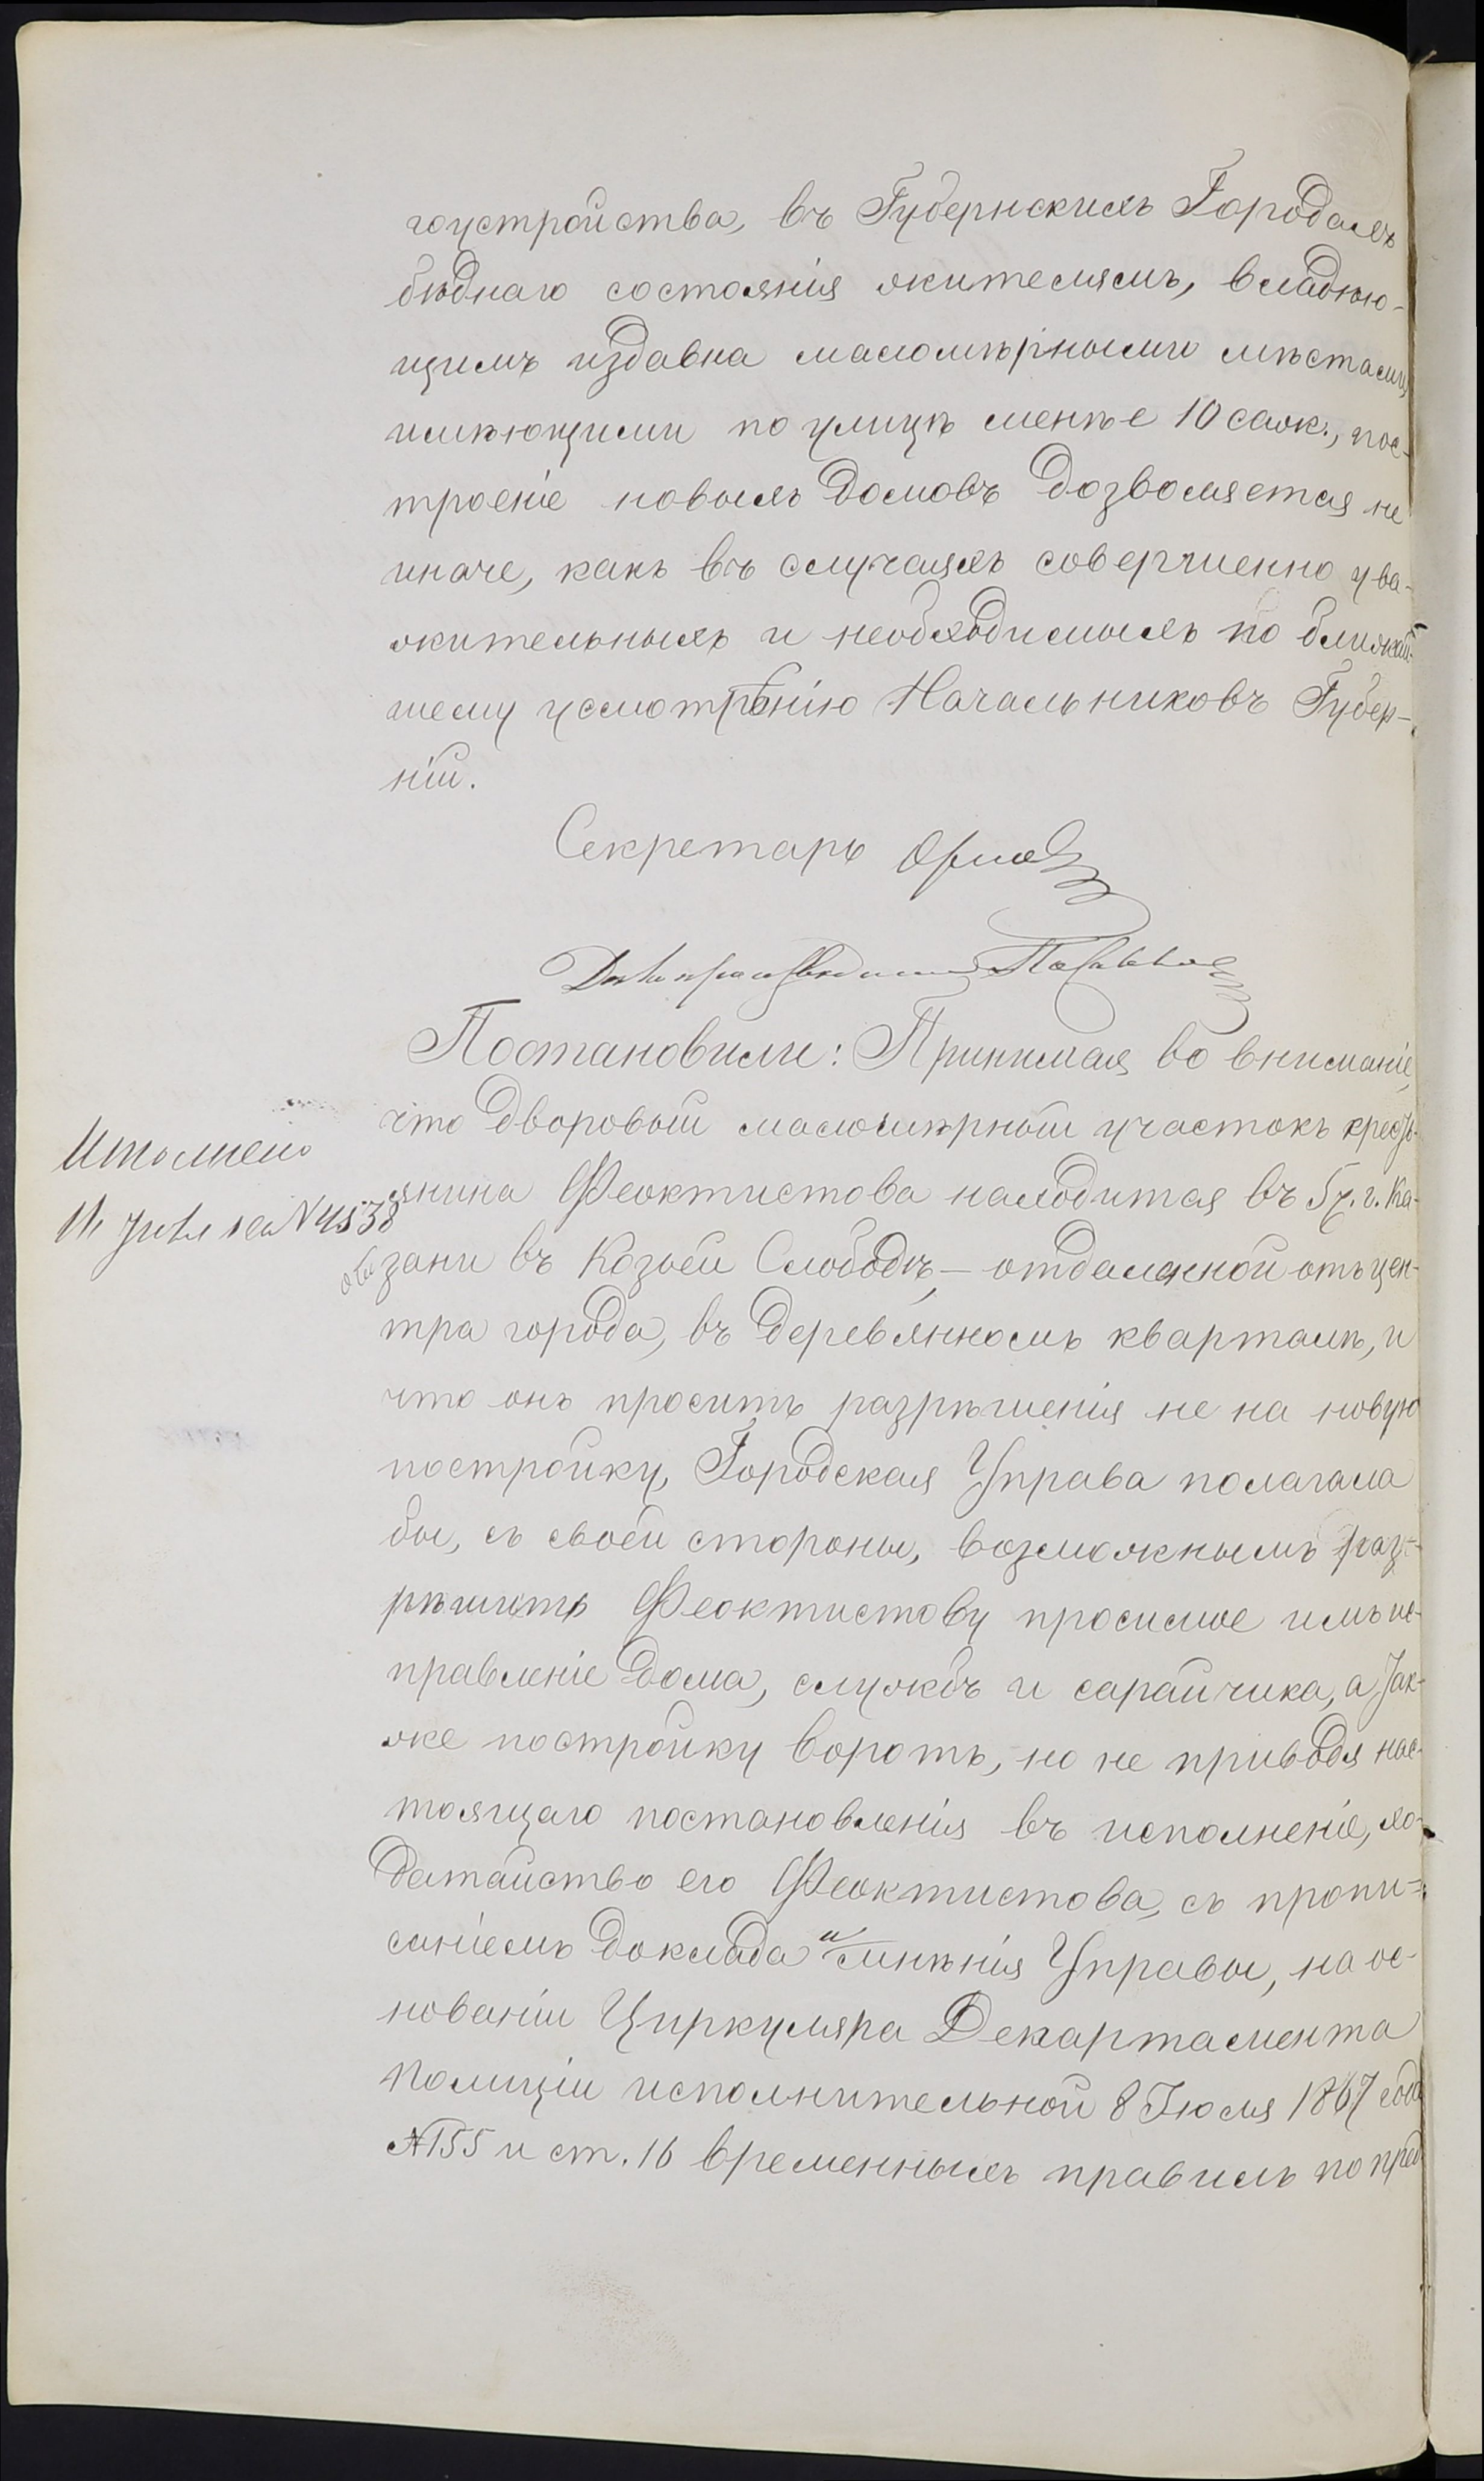 гоустройства, въ Губернскихъ Городахъ
бѣднаго состоянія жителямъ, владѣю-
щимъ издавна маломѣрными мѣстами,
имѣющими по улицѣ менѣе 10 саж., пос-
троеніе новыхъ домовъ дозволяется не
иначе, какъ въ случаяхъ совершенно ува-
жительныхъ и необходимыхъ по ближай-
шему усмотрѣнію Начальниковъ Губер-
ніи.
Секретарь Орлов
Дѣлопроизводитель
Постановили: Принимая во вниманіе,
что дворовый маломѣрный участокъ кресть-
янина Феоктистова находится въ 5 ч. г. Ка-
зани въ Козьей Слободѣ, — отдаленной отъ цен-
тра города, въ деревянномъ кварталѣ, и
что онъ проситъ разрѣшенія не на новую
постройку, Городская Управа полагала
бы, съ своей стороны, возможнымъ раз-
рѣшить Феоктистову просимое имъ ис-
правленіе дома, службъ и сарайчика, а так-
же постройку воротъ, но не приводя нас-
тоящаго постановленія въ исполненіе, хо-
датайство его Феоктистова, съ пропи-
саніемъ доклада и мнѣнія Управы, на ос-
нованіи Циркуляра Декартамента
полиціи исполнительной 8 Іюля 1867 года
№ 155 и ст. 16 временныхъ правилъ по пред
Исполнено
11 № 4538